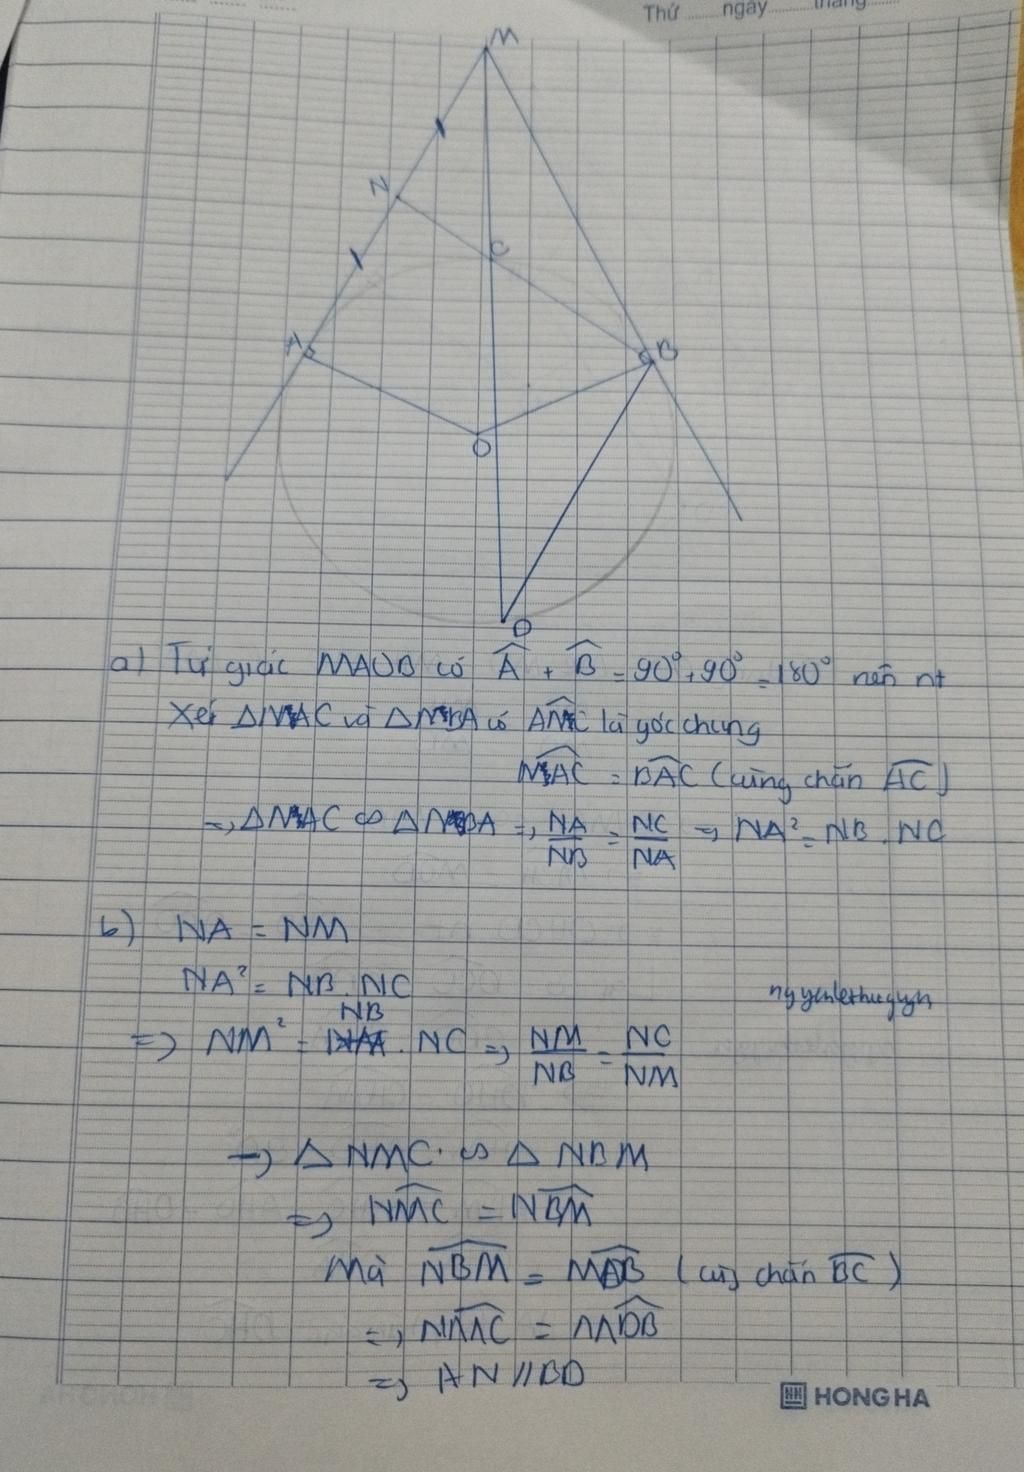 Thứ ........ ngày ........ tháng ........
M
N
C
A
B
O
D
a) Tứ giác MAOB có Â + B̂ = 90° + 90° = 180° nên nt
Xét ΔNAC và ΔNBA có ANC là góc chung
NAC = BAC (cùng chắn AC)
=> ΔNAC ∽ ΔNBA => NA/NB = NC/NA => NA² = NB . NC
b) NA = NM
NA² = NB . NC
=> NM² = NB . NC => NM/NB = NC/NM
nguyenlethuquyn
=> Δ NMC ∽ Δ NBM
=> NMC = NBM
Mà NBM = MDB (cùg chắn BC)
=> NMC = MDB
=> AN // BD
HONG HA